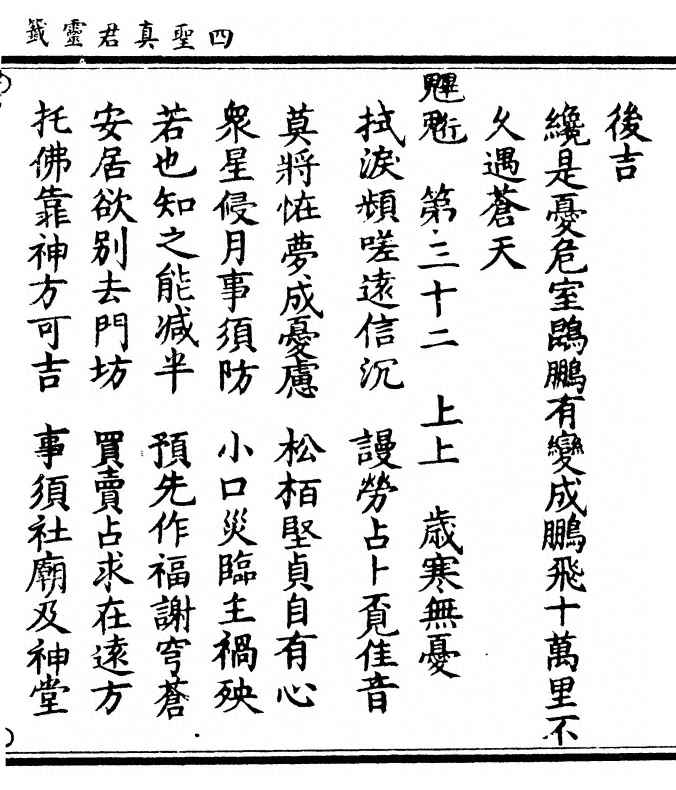 四聖真君靈籤
後吉
纔是憂危室鵾鵬有變成鵬飛十萬里不
乆遇蒼天
魓䰢 第三十二 上上 歳寒無憂
拭淚頻嗟遠信沉 謾勞占卜覔佳音
莫將恠夢成憂慮 松栢堅貞自有心
衆星侵月事須防 小口災臨主禍殃
若也知之能减半 預先作福謝穹蒼
安居欲别去門坊 買賣占求在遠方
托佛靠神方可吉 事須社廟及神堂